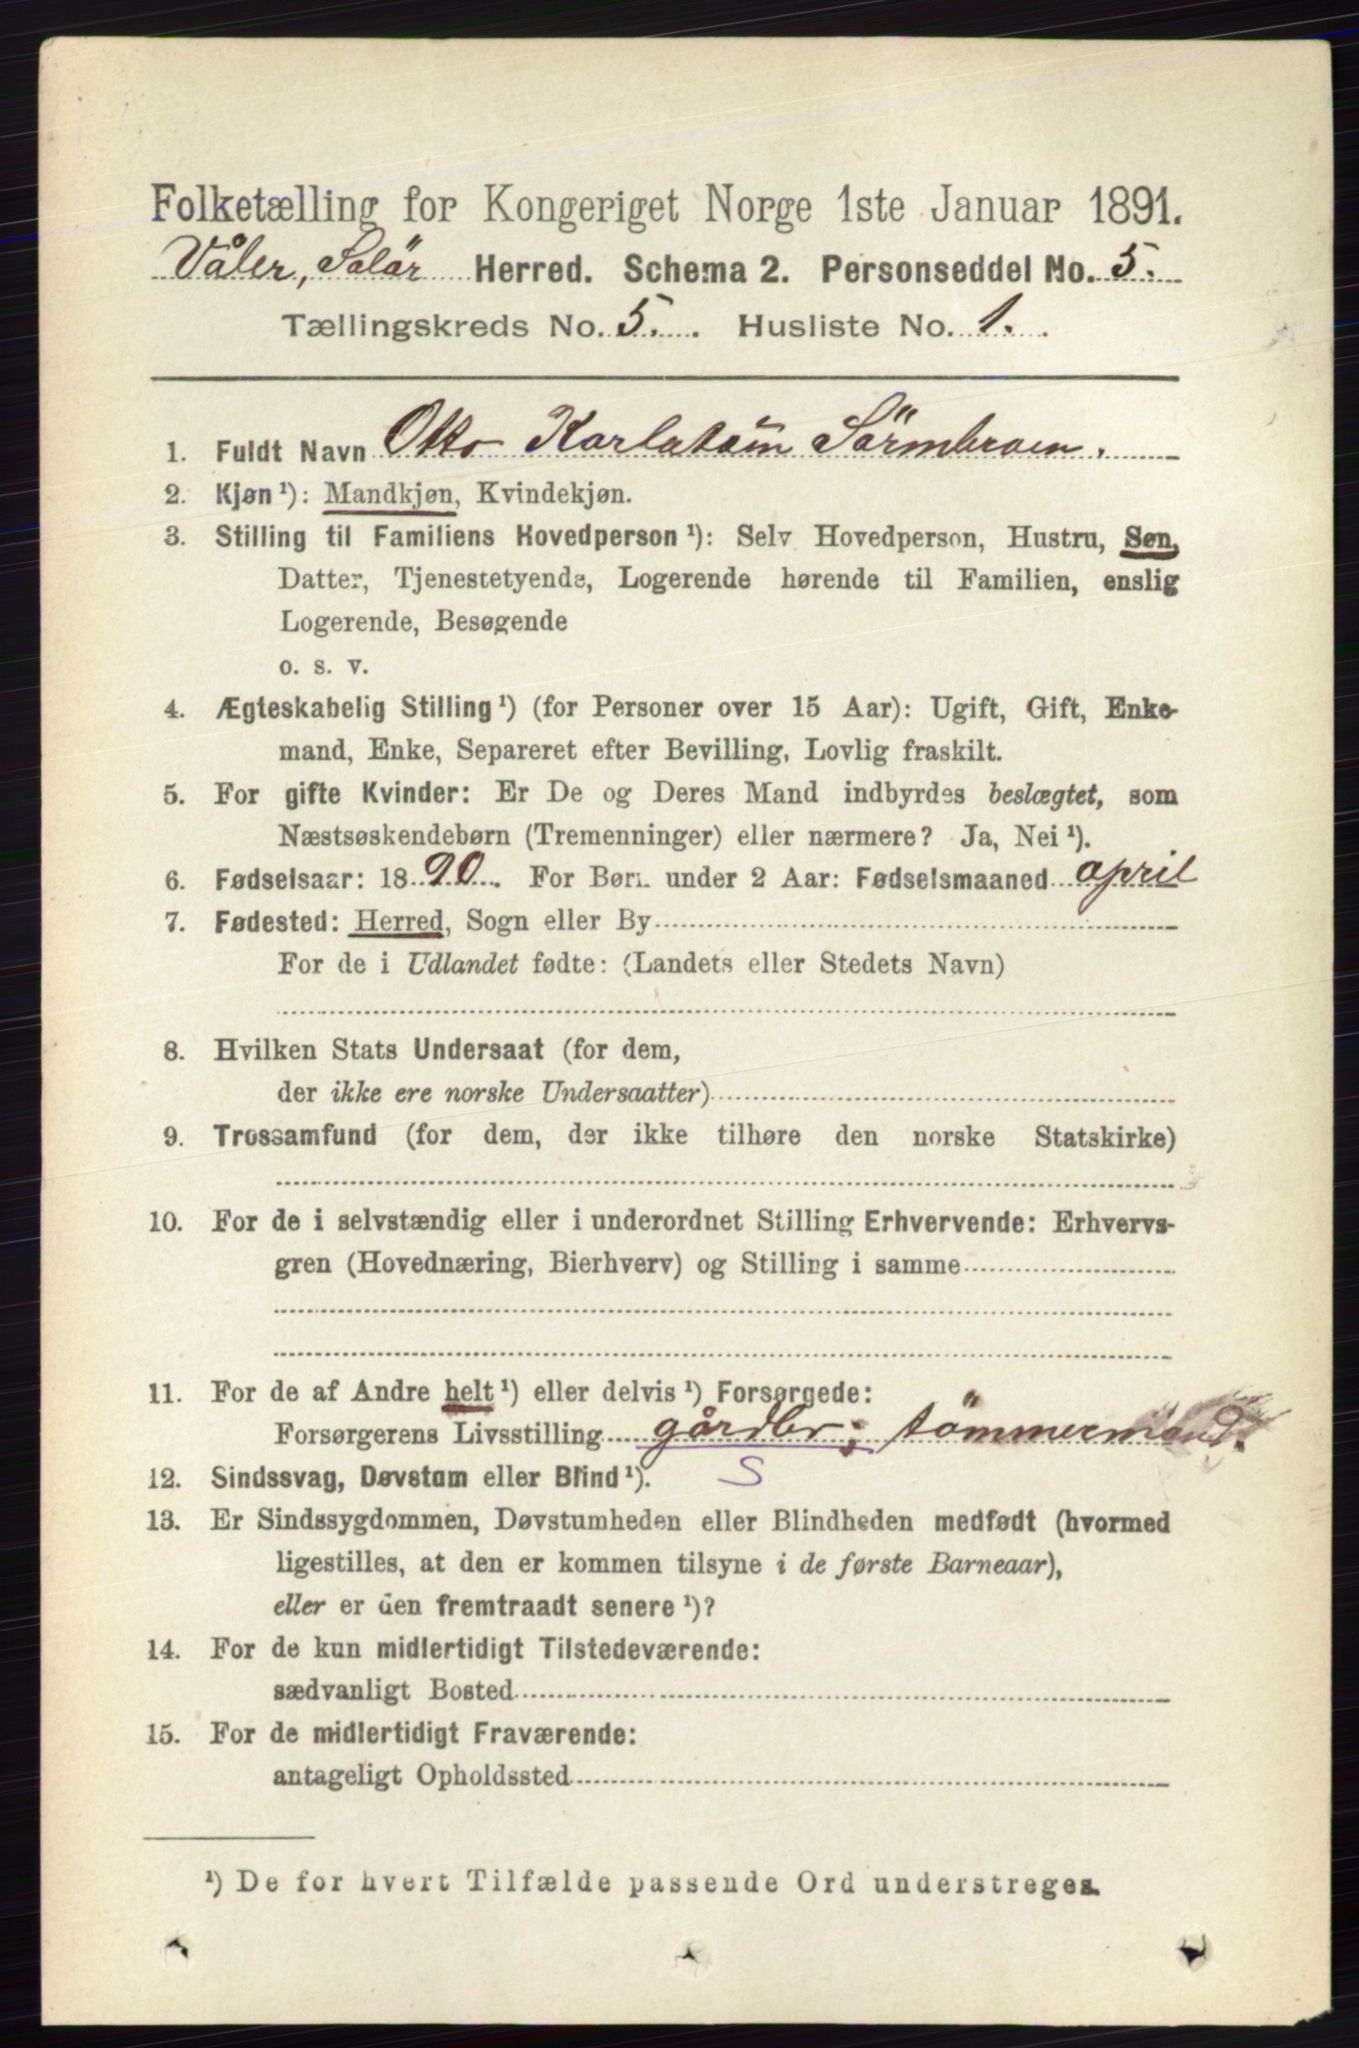 Folketælling for Kongeriget Norge 1ste Januar 1891.
Våler, Solör Herred. Schema 2. Personseddel No. 5.
Tællingskreds No. 5. Husliste No. 1.
1. Fuldt Navn Otto Karlstön Sörmbroen.
2. Kjøn ¹): Mandkjøn, Kvindekjøn.
3. Stilling til Familiens Hovedperson ¹): Selv Hovedperson, Hustru, Søn,
Datter, Tjenestetyende, Logerende hørende til Familien, enslig
Logerende, Besøgende
o. s. v.
4. Ægteskabelig Stilling ¹) (for Personer over 15 Aar): Ugift, Gift, Enke-
mand, Enke, Separeret efter Bevilling, Lovlig fraskilt.
5. For gifte Kvinder: Er De og Deres Mand indbyrdes beslægtet, som
Næstsøskendebørn (Tremenninger) eller nærmere? Ja, Nei ¹).
6. Fødselsaar: 1890. For Børn under 2 Aar: Fødselsmaaned april
7. Fødested: Herred, Sogn eller By
For de i Udlandet fødte: (Landets eller Stedets Navn)
8. Hvilken Stats Undersaat (for dem,
der ikke ere norske Undersaatter)
9. Trossamfund (for dem, der ikke tilhøre den norske Statskirke)
10. For de i selvstændig eller i underordnet Stilling Erhvervende: Erhvervs-
gren (Hovednæring, Bierhverv) og Stilling i samme
11. For de af Andre helt ¹) eller delvis ¹) Forsørgede:
Forsørgerens Livsstilling gårdbr; tömmermand.
12. Sindssvag, Døvstum eller Blind ¹). S
13. Er Sindssygdommen, Døvstumheden eller Blindheden medfødt (hvormed
ligestilles, at den er kommen tilsyne i de første Barneaar),
eller er den fremtraadt senere ¹)?
14. For de kun midlertidigt Tilstedeværende:
sædvanligt Bosted
15. For de midlertidigt Fraværende:
antageligt Opholdssted
¹) De for hvert Tilfælde passende Ord understreges.